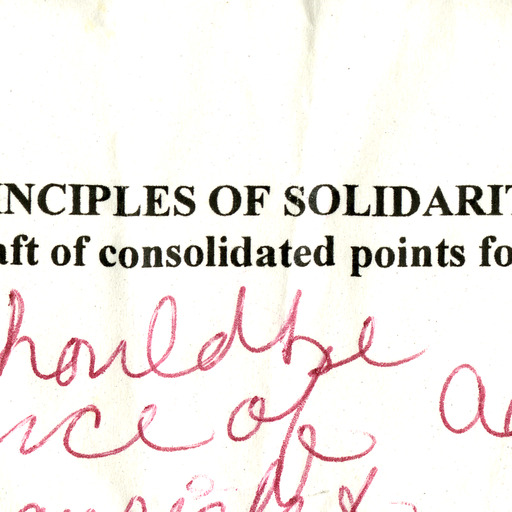 INCIPLES OF SOLIDARIT
aft of consolidated points fo
hould be
nce of